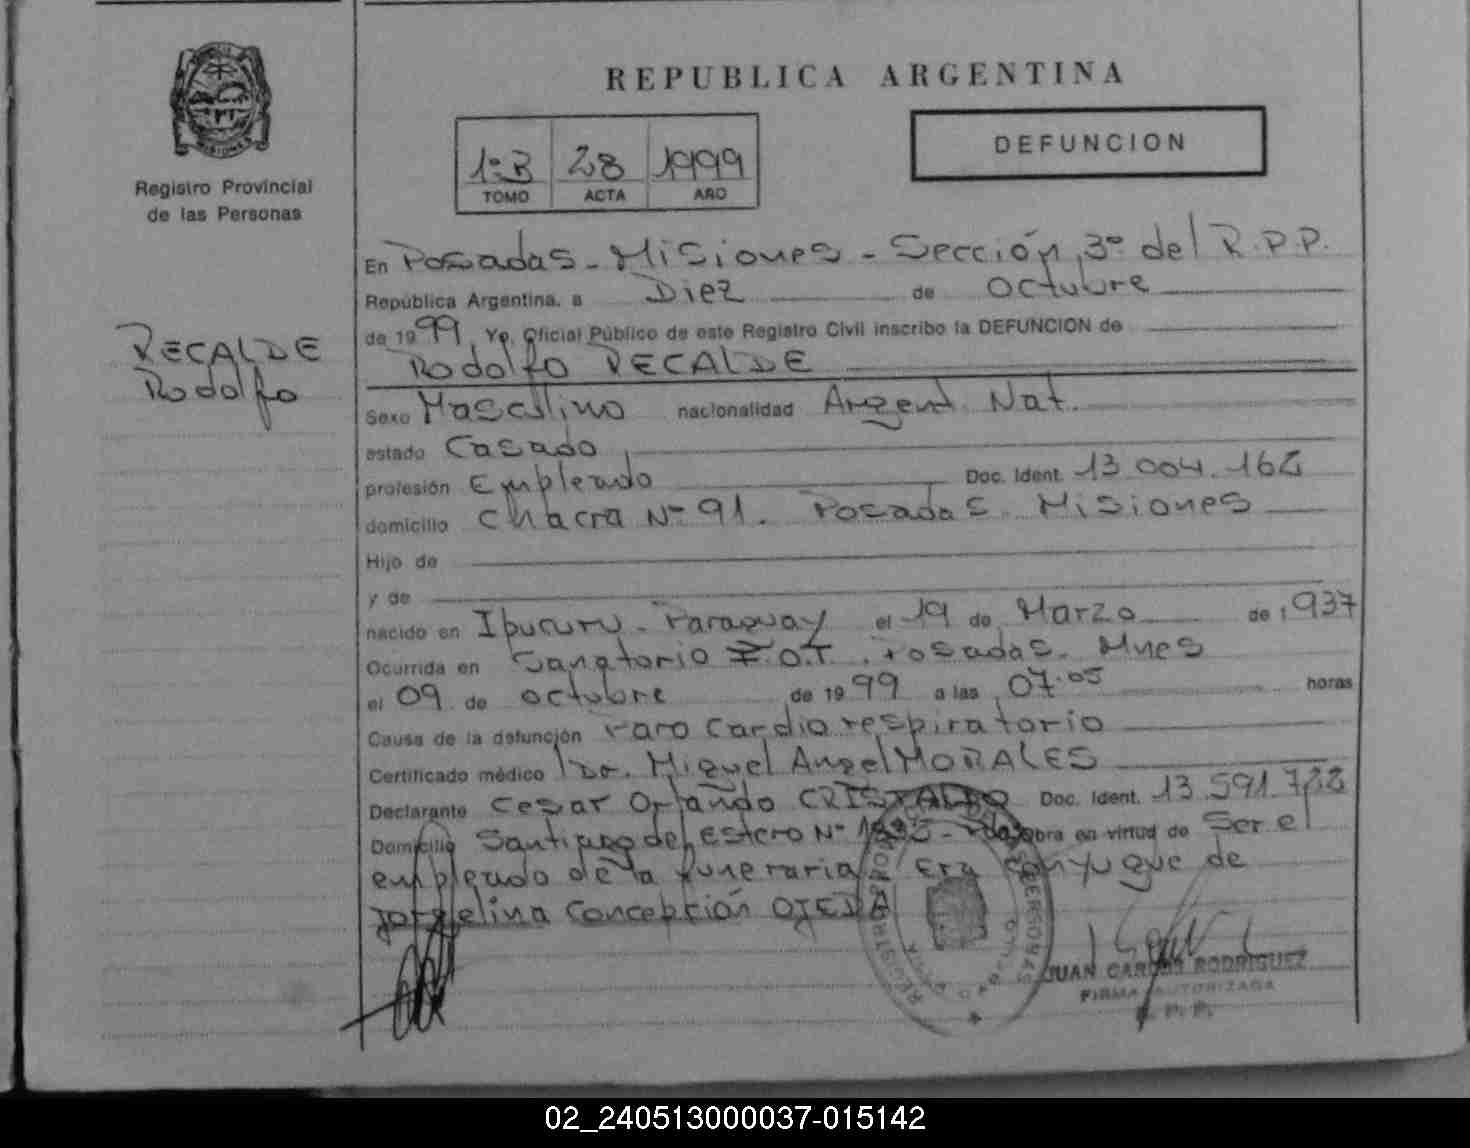 REPUBLICA ARGENTINA
Registro Provincial
de las Personas
1º B 28 1999
TOMO ACTA AÑO
DEFUNCION
En Posadas - Misiones - Sección 3º del R.P.P.
República Argentina, a Diez de Octubre
de 1999, Yo, Oficial Público de este Registro Civil inscribo la DEFUNCION de
Rodolfo RECALDE
RECALDE
Rodolfo
Sexo Masculino nacionalidad Argent. Nat.
estado Casado
profesión Empleado Doc. Ident. 13.004.162
domicilio Chacra Nº 91. Posadas - Misiones
Hijo de
y de
nacido en Ipucuru - Paraguay el 19 de Marzo de 1937
Ocurrida en Sanatorio I.O.T. Posadas - Mnes
el 09 de octubre de 1999 a las 07.05 horas
Causa de la defunción Paro Cardio respiratorio
Certificado médico Dr. Miguel Angel MORALES
Declarante Cesar Orlando CRISTALDO Doc. Ident. 13.591.722
Domicilio Santiago del Estero Nº obra en virtud de Ser el
empleado de la funeraria. Era conyuge de
Jorgelina Concepción OJEDA
JUAN CARLOS RODRIGUEZ
FIRMA AUTORIZADA
R. P. P.
02_240513000037-015142